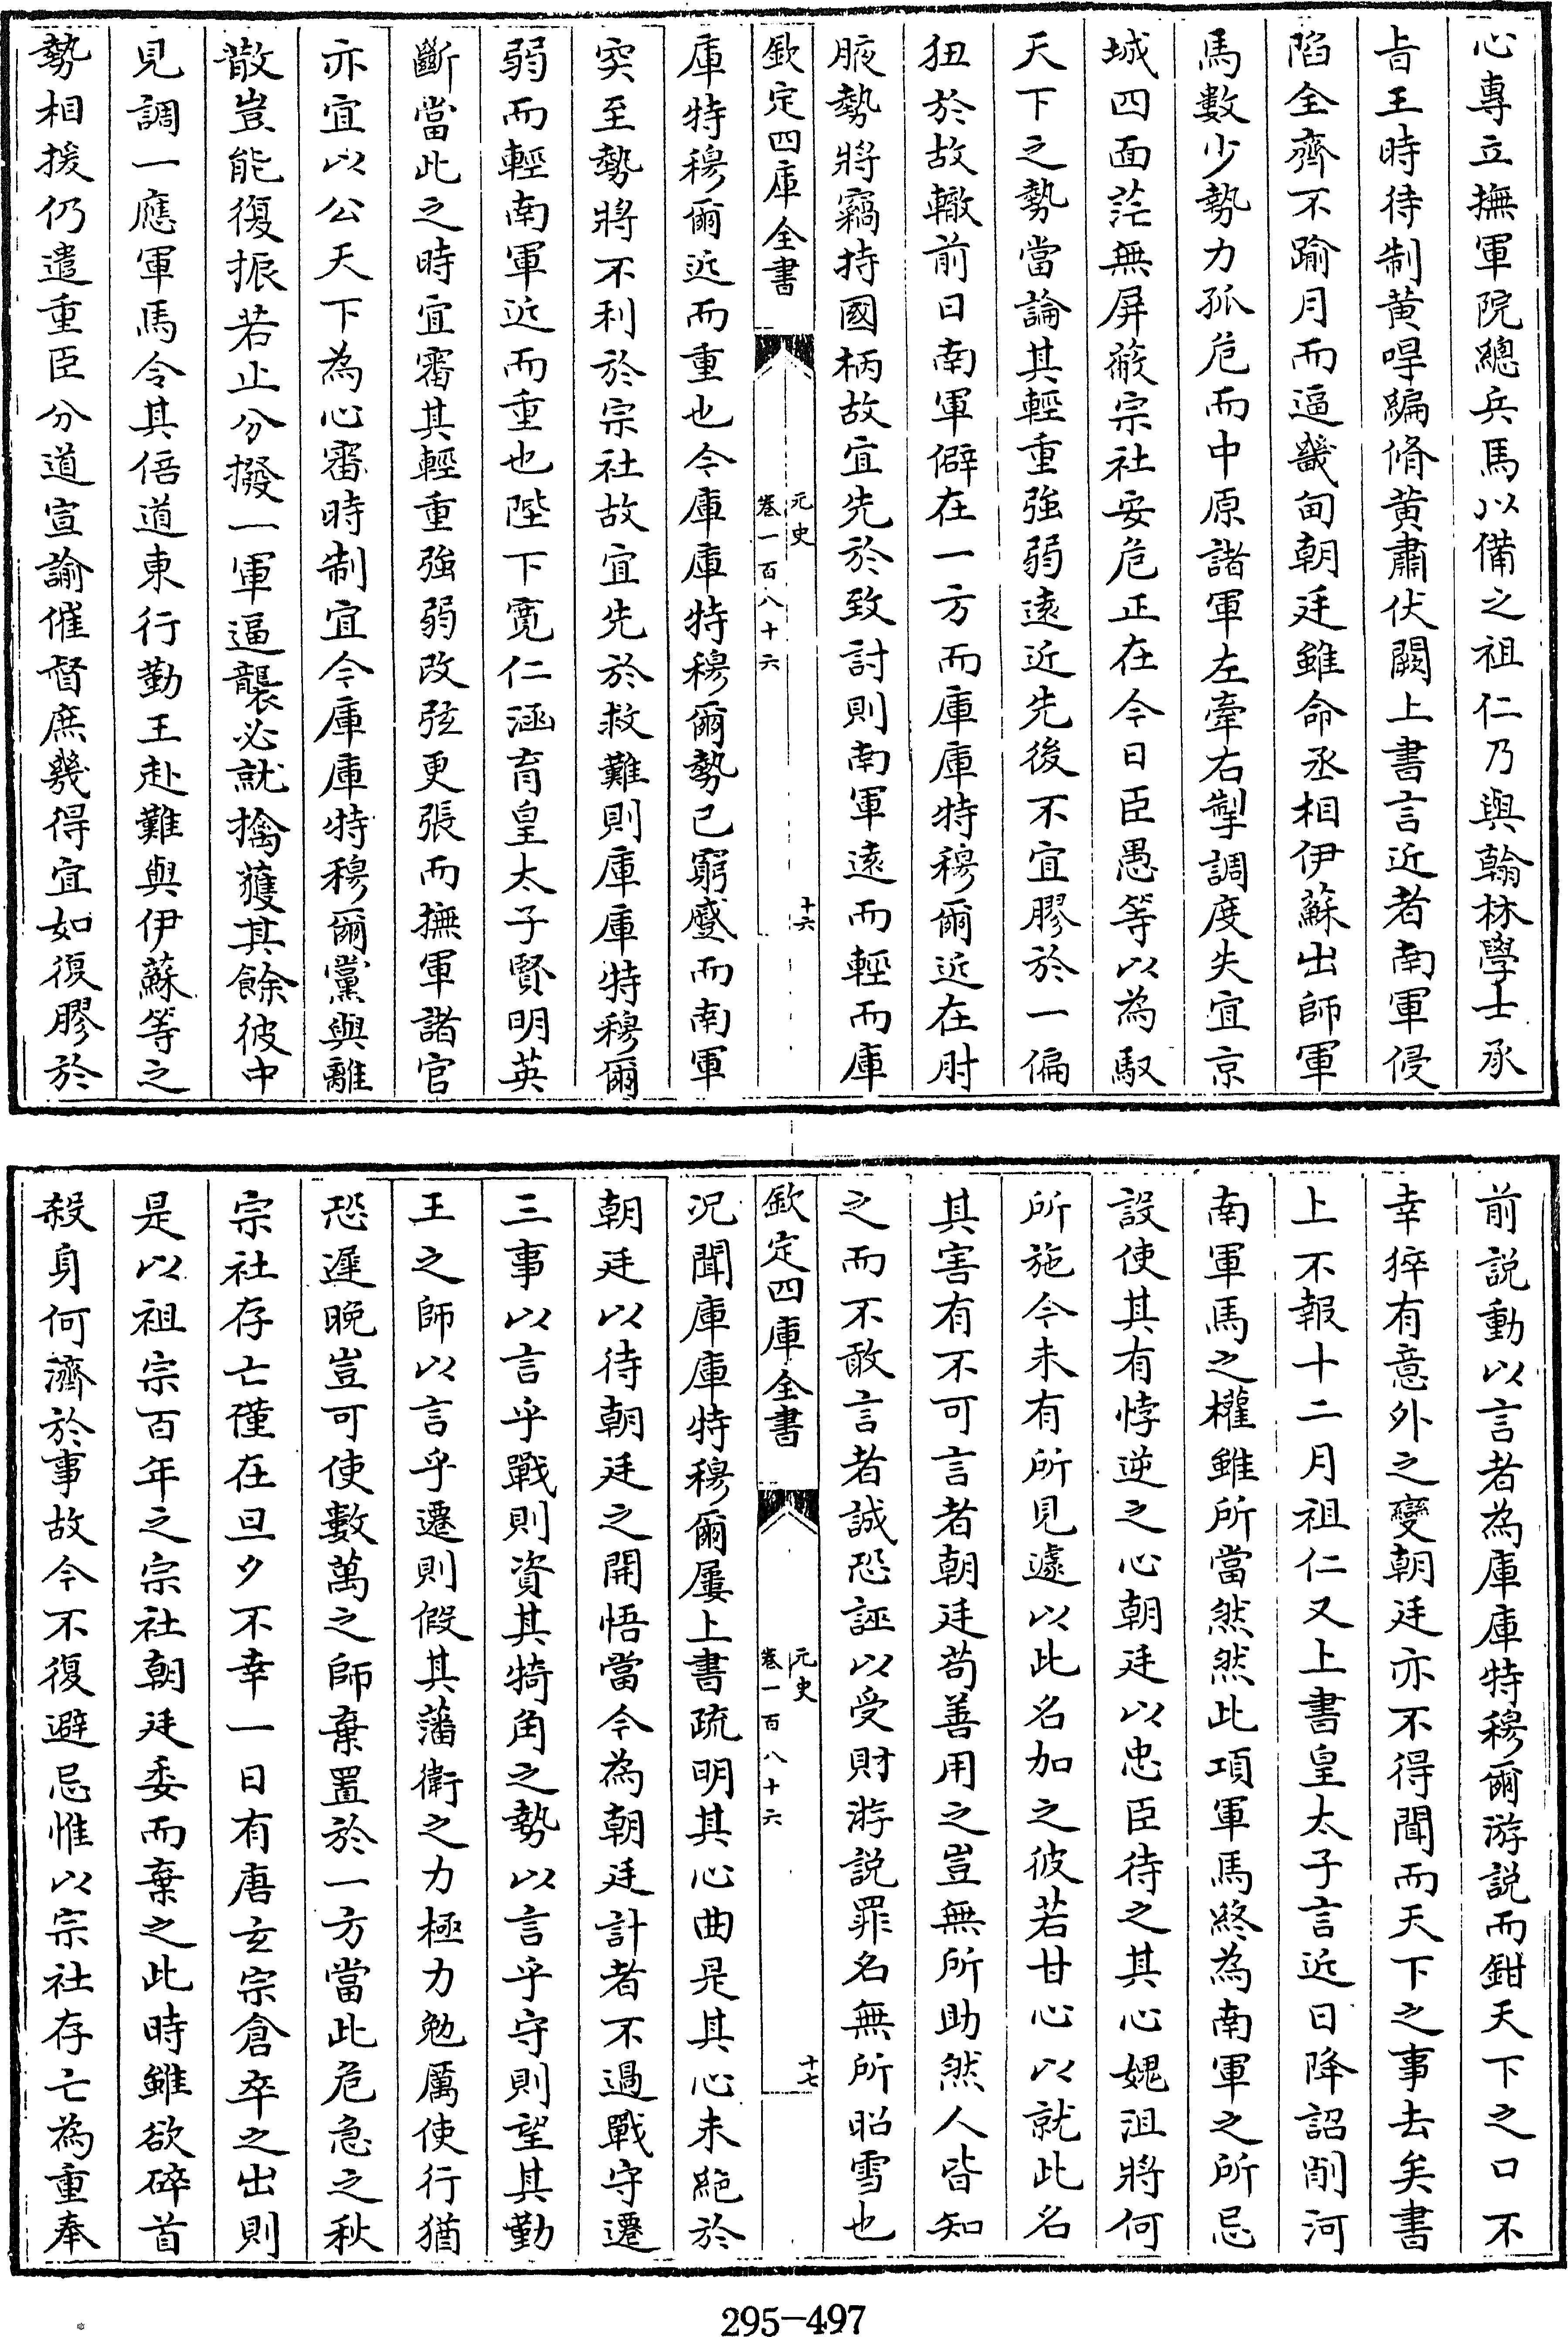 心專立撫軍院總兵馬以備之祖仁乃與翰林學士承
旨王時待制黄㬇編脩黄肅伏闕上書言近者南軍侵
陷全齊不踰月而逼畿甸朝廷雖命丞相伊蘇出師軍
馬數少勢力孤危而中原諸軍左牽右掣調度失宜京
城四面茫無屏蔽宗社安危正在今日臣愚等以為馭
天下之勢當論其輕重強弱遠近先後不宜膠於一偏
狃於故轍前日南軍僻在一方而庫庫特穆爾近在肘
腋勢將竊持國柄故宜先於致討則南軍遠而輕而庫
欽定四庫全書
元史
卷一百八十六
十六
庫特穆爾近而重也今庫庫特穆爾勢已窮蹙而南軍
突至勢將不利於宗社故宜先於救難則庫庫特穆爾
弱而輕南軍近而重也陛下寛仁涵育皇太子賢明英
斷當此之時宜審其輕重強弱改弦更張而撫軍諸官
亦宜以公天下為心審時制宜今庫庫特穆爾黨與離
散豈能復振若止分撥一軍逼襲必就擒獲其餘彼中
見調一應軍馬令其倍道東行勤王赴難與伊蘇等之
勢相援仍遣重臣分道宣諭催督庶幾得宜如復膠於
前説動以言者為庫庫特穆爾游説而鉗天下之口不
幸猝有意外之變朝廷亦不得聞而天下之事去矣書
上不報十二月祖仁又上書皇太子言近日降詔削河
南軍馬之權雖所當然然此項軍馬終為南軍之所忌
設使其有悖逆之心朝廷以忠臣待之其心媿沮將何
所施今未有所見遽以此名加之彼若甘心以就此名
其害有不可言者朝廷苟善用之豈無所助然人皆知
之而不敢言者誠恐誣以受財游説罪名無所昭雪也
欽定四庫全書
元史
卷一百八十六
十七
況聞庫庫特穆爾屢上書疏明其心曲是其心未絶於
朝廷以待朝廷之開悟當今為朝廷計者不過戰守遷
三事以言乎戰則資其犄角之勢以言乎守則望其勤
王之師以言乎遷則假其藩衛之力極力勉厲使行猶
恐遲晚豈可使數萬之師棄置於一方當此危急之秋
宗社存亡僅在旦夕不幸一日有唐玄宗倉卒之出則
是以祖宗百年之宗社朝廷委而棄之此時雖欲碎首
殺身何濟於事故今不復避忌惟以宗社存亡為重奉
295-497